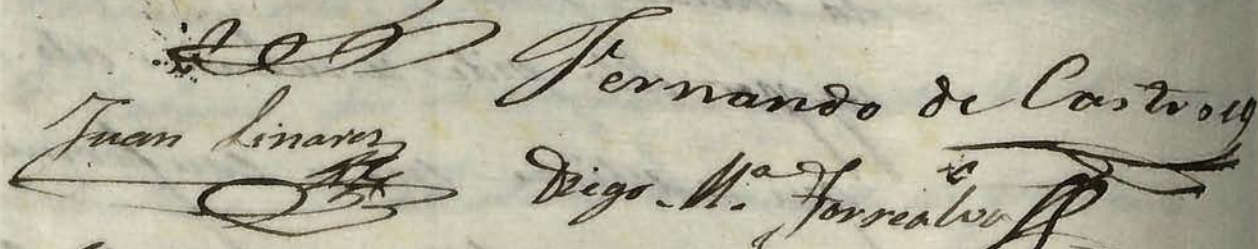 Fernando de Castro
Juan Linares
Diego M.ª Torrealva